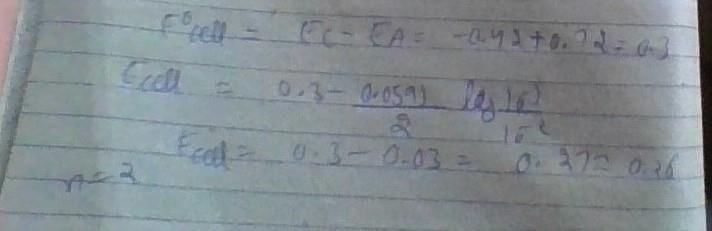 E°cell = EC - EA = -0.42 + 0.72 = 0.3
Ecell = 0.3 - 0.0591/2 log 10⁻¹/10⁻²
Ecell = 0.3 - 0.03 = 0.27 = 0.26
n = 2